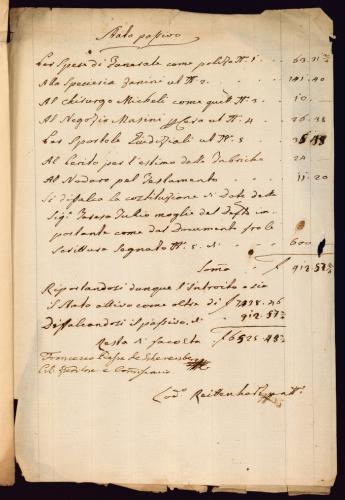 Stato passivo
Per Spese di Funerale come polizza N. 1 . . 63.31
Alla Speciaria Zanini ut N. 2. . . 141.40
Al Chirurgo Micheli come quit. N. 3 . . 10.
Al Negozio Masini ut N. 4 . . 26.38
Per Sportole Giudiziali ut N. 5
Al Perito per l'estimo delle Fabriche . . 24
Al Nodaro pel Testamento . . . 11.20
Si difalca la costituzione di Dote della
Sig. Teresa moglie del Def. im-
portante come dal Documento fra le
Scritture Segnato N. 5. di . . 600
Soma f 912.57
Riportandosi dunque l'Introito o sia
il Stato attivo come oltre di f 7438.46
Difalcandosi il passivo di 912.57
Resta di facoltà f 6525.48
Francesco